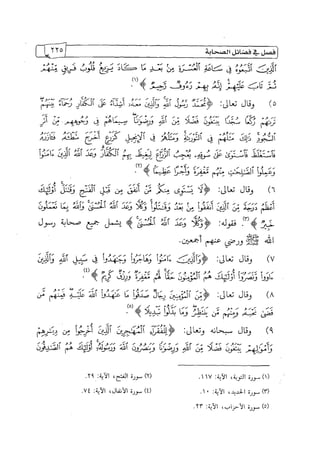 فصل في فضائل الصحابة ٢٢٥
الَّذِينَ اتَّبَعُوهُ فِي سَاعَةِ الْعُسْرَةِ مِنْ بَعْدِ مَا كَادَ يَزِيغُ قُلُوبُ فَرِيقٍ مِنْهُمْ
ثُمَّ تَابَ عَلَيْهِمْ إِنَّهُ بِهِمْ رَءُوفٌ رَحِيمٌ﴾(١).
٥) وقال تعالى: ﴿مُحَمَّدٌ رَسُولُ اللَّهِ وَالَّذِينَ مَعَهُ أَشِدَّاءُ عَلَى الْكُفَّارِ رُحَمَاءُ بَيْنَهُمْ
تَرَاهُمْ رُكَّعًا سُجَّدًا يَبْتَغُونَ فَضْلًا مِنَ اللَّهِ وَرِضْوَانًا سِيمَاهُمْ فِي وُجُوهِهِمْ مِنْ أَثَرِ
السُّجُودِ ذَلِكَ مَثَلُهُمْ فِي التَّوْرَاةِ وَمَثَلُهُمْ فِي الْإِنْجِيلِ كَزَرْعٍ أَخْرَجَ شَطْأَهُ فَآزَرَهُ
فَاسْتَغْلَظَ فَاسْتَوَى عَلَى سُوقِهِ يُعْجِبُ الزُّرَّاعَ لِيَغِيظَ بِهِمُ الْكُفَّارَ وَعَدَ اللَّهُ الَّذِينَ ءَامَنُوا
وَعَمِلُوا الصَّالِحَاتِ مِنْهُمْ مَغْفِرَةً وَأَجْرًا عَظِيمًا﴾(٢).
٦) وقال تعالى: ﴿لَا يَسْتَوِي مِنْكُمْ مَنْ أَنْفَقَ مِنْ قَبْلِ الْفَتْحِ وَقَاتَلَ أُولَئِكَ
أَعْظَمُ دَرَجَةً مِنَ الَّذِينَ أَنْفَقُوا مِنْ بَعْدُ وَقَاتَلُوا وَكُلًّا وَعَدَ اللَّهُ الْحُسْنَى وَاللَّهُ بِمَا تَعْمَلُونَ
خَبِيرٌ﴾(٣). فقوله: ﴿وَكُلًّا وَعَدَ اللَّهُ الْحُسْنَى﴾ يشمل جميع صحابة رسول
الله ﷺ ورضي عنهم أجمعين.
٧) وقال تعالى: ﴿وَالَّذِينَ ءَامَنُوا وَهَاجَرُوا وَجَاهَدُوا فِي سَبِيلِ اللَّهِ وَالَّذِينَ
ءَاوَوْا وَنَصَرُوا أُولَئِكَ هُمُ الْمُؤْمِنُونَ حَقًّا لَهُمْ مَغْفِرَةٌ وَرِزْقٌ كَرِيمٌ﴾(٤).
٨) وقال تعالى: ﴿مِنَ الْمُؤْمِنِينَ رِجَالٌ صَدَقُوا مَا عَاهَدُوا اللَّهَ عَلَيْهِ فَمِنْهُمْ مَنْ
قَضَى نَحْبَهُ وَمِنْهُمْ مَنْ يَنْتَظِرُ وَمَا بَدَّلُوا تَبْدِيلًا﴾(٥).
٩) وقال سبحانه وتعالى: ﴿لِلْفُقَرَاءِ الْمُهَاجِرِينَ الَّذِينَ أُخْرِجُوا مِنْ دِيَارِهِمْ
وَأَمْوَالِهِمْ يَبْتَغُونَ فَضْلًا مِنَ اللَّهِ وَرِضْوَانًا وَيَنْصُرُونَ اللَّهَ وَرَسُولَهُ أُولَئِكَ هُمُ الصَّادِقُونَ
(١) سورة التوبة، الآية: ١١٧. (٢) سورة الفتح، الآية: ٢٩.
(٣) سورة الحديد، الآية: ١٠. (٤) سورة الأنفال، الآية: ٧٤.
(٥) سورة الأحزاب، الآية: ٢٣.